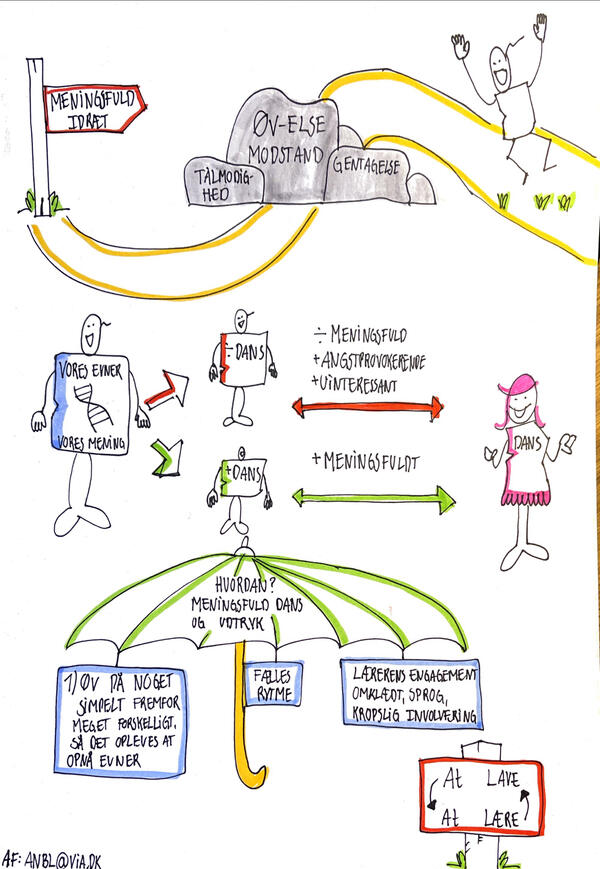 MENINGSFULD
IDRÆT
ØV-ELSE
MODSTAND
TÅLMODIG-
HED
GENTAGELSE
VORES EVNER
VORES MENING
÷ DANS
+ DANS
÷ MENINGSFULD
+ ANGSTPROVOKERENDE
+ UINTERESSANT
+ MENINGSFULDT
DANS
HVORDAN?
MENINGSFULD DANS
OG UDTRYK
1) ØV PÅ NOGET
SIMPELT FREMFOR
MEGET FORSKELLIGT,
SÅ DET OPLEVES AT
OPNÅ EVNER
FÆLLES
RYTME
LÆRERENS ENGAGEMENT
OMKLÆDT, SPROG,
KROPSLIG INVOLVERING
At LAVE
At LÆRE
AF: ANBL@VIA.DK